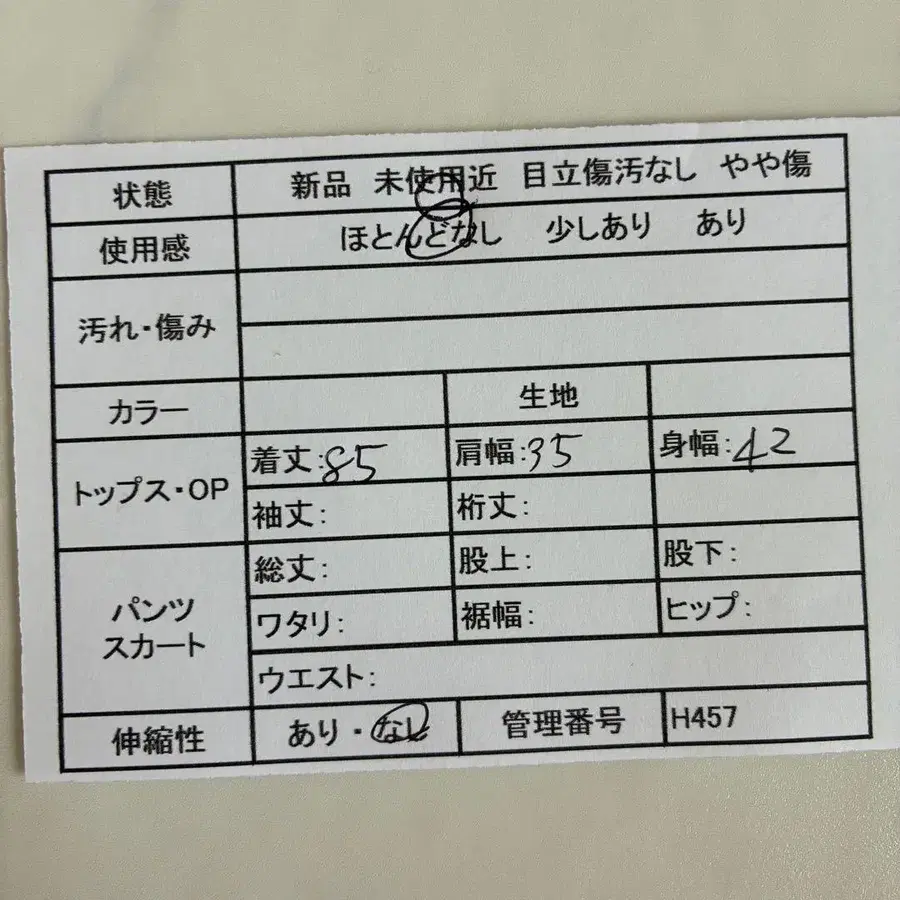 状態 新品 未使用近 目立傷汚なし やや傷
使用感 ほとんどなし 少しあり あり
汚れ・傷み
カラー 生地
トップス・OP 着丈:85 肩幅:35 身幅:42
袖丈: 裄丈:
パンツ
スカート
総丈: 股上: 股下:
ワタリ: 裾幅: ヒップ:
ウエスト:
伸縮性 あり・なし 管理番号 H457